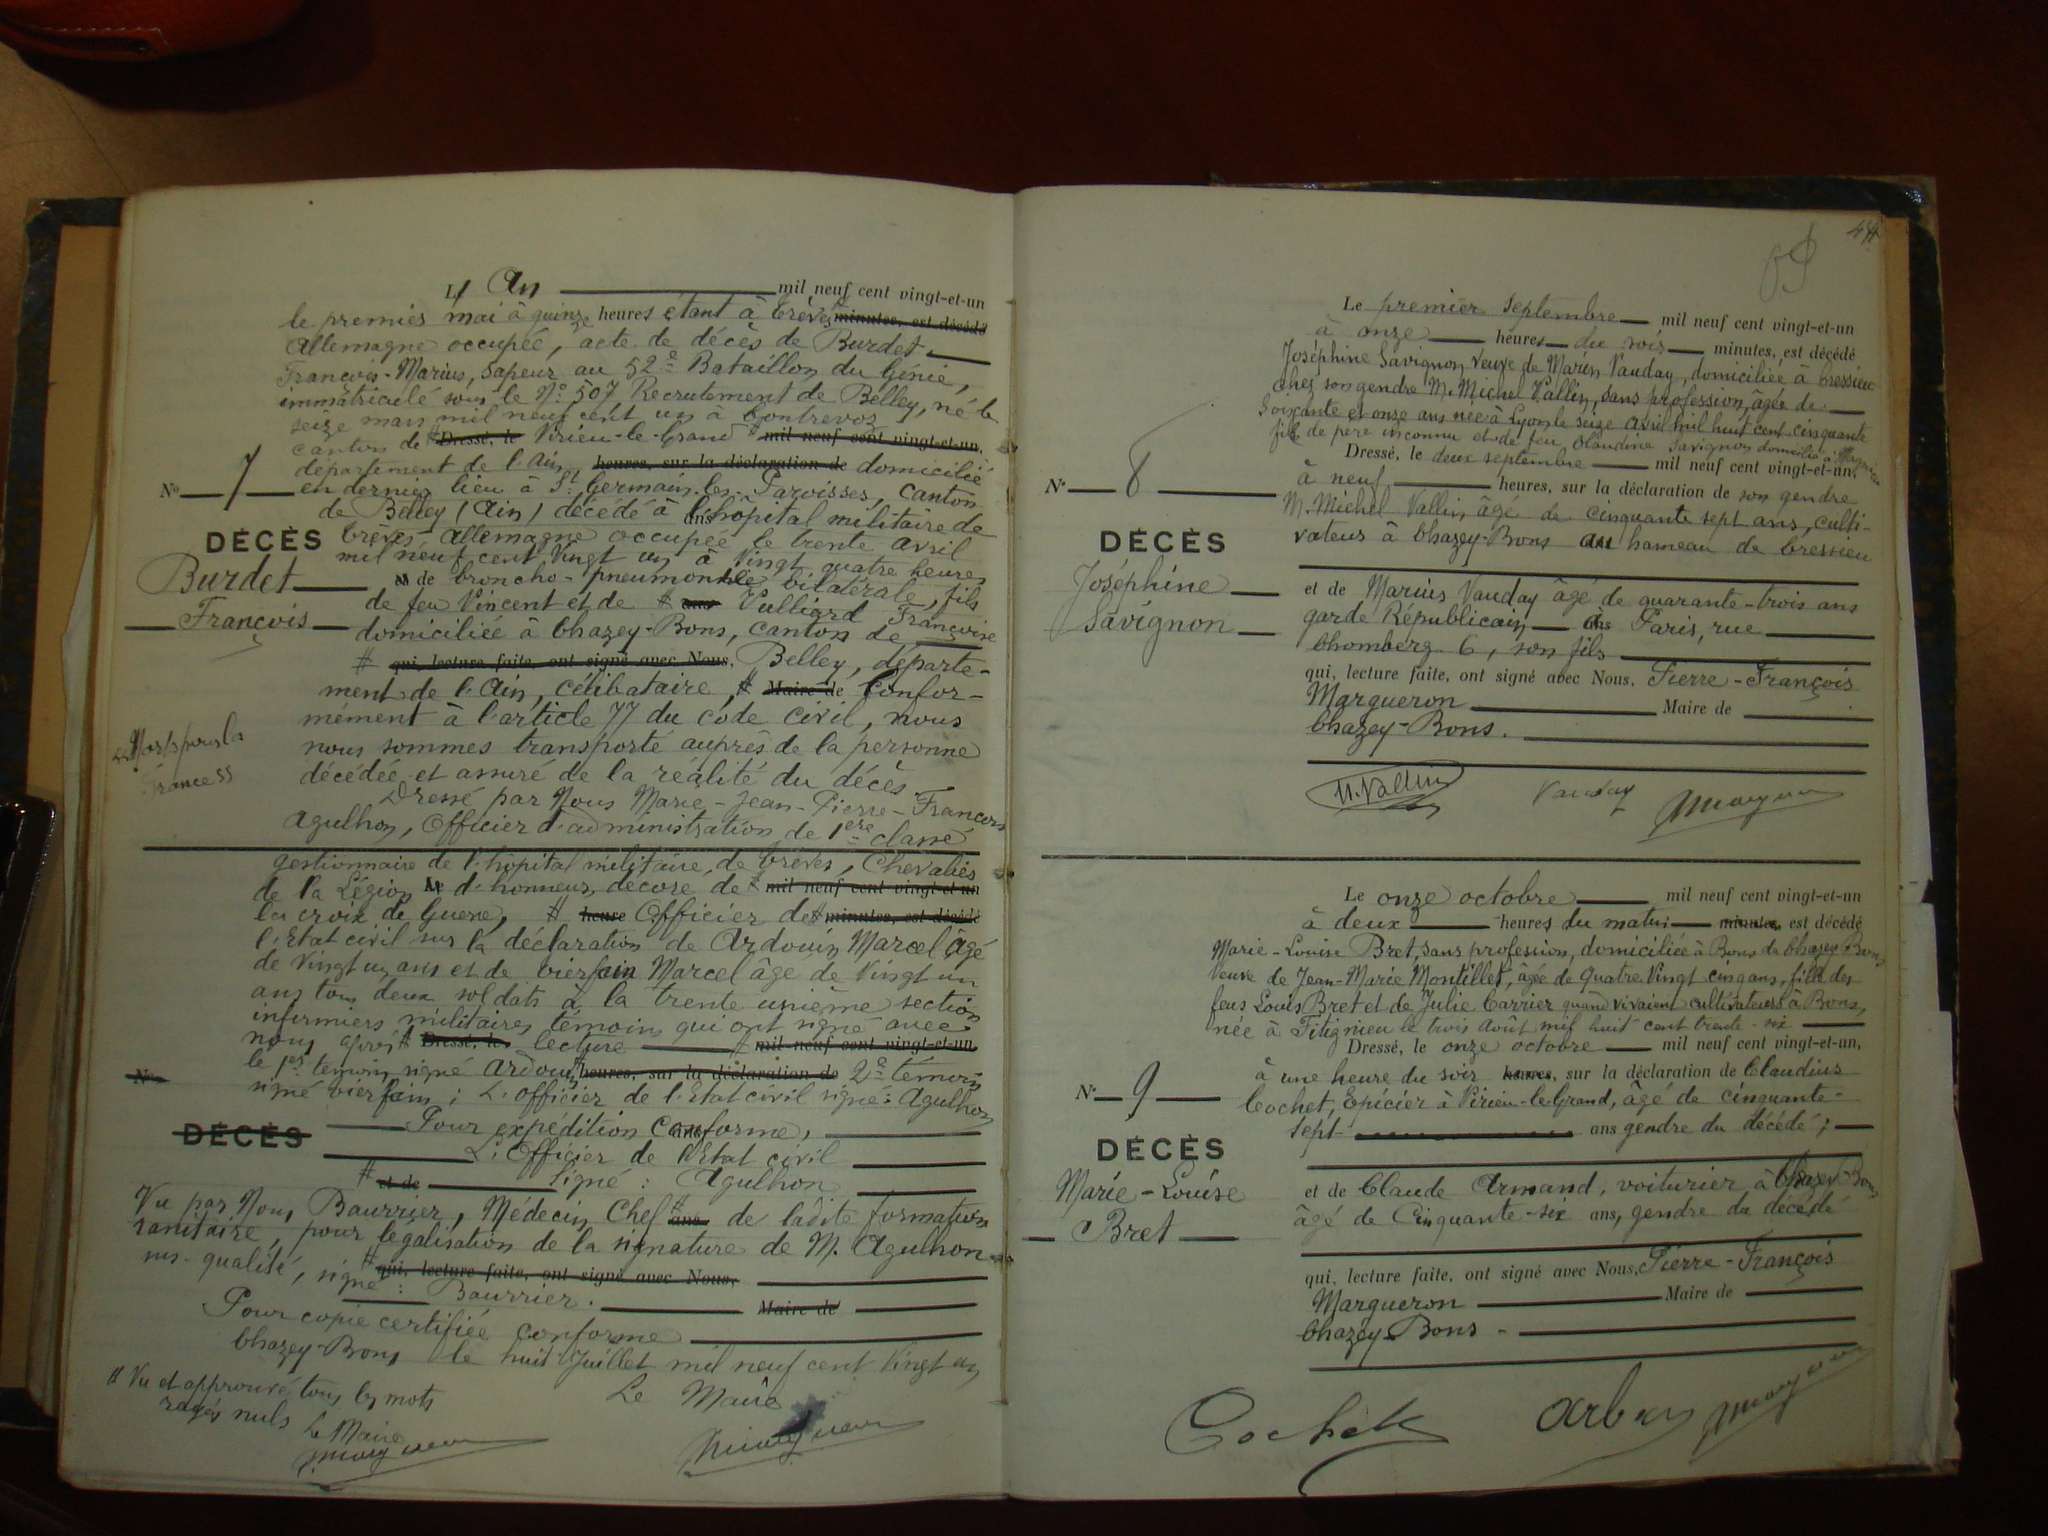 L'An mil neuf cent vingt-et-un
le premier mai à quinze heures étant à Trèves minutes, est décédé
Allemagne occupée, acte de décès de Burdet
François-Marius, Sapeur au 52e Bataillon du Génie,
immatriculé sous le No 507 Recrutement de Belley, né le
seize mars mil neuf cent un à Contrevoz
canton de # Dressé, le Virieu-le-Grand # mil neuf cent vingt-et-un,
département de l'Ain, heures, sur la déclaration de domicilié
No 7 en dernier lieu à St Germain-les-Paroisses, canton
de Belley (Ain) décédé à ans l'hôpital militaire de
DÉCÈS Trèves Allemagne occupée le trente avril
mil neuf cent vingt un à vingt quatre heures
Burdet de broncho-pneumonie bilatérale, fils
de feu Vincent et de # ans Vulliard Françoise
François domiciliée à Chazey-Bons, canton de
# qui, lecture faite, ont signé avec Nous, Belley, départe-
ment de l'Ain, célibataire, # Maire de Confor-
mément à l'article 77 du code civil, nous
"Mort pour la
nous sommes transporté auprès de la personne
France"
décédée et assuré de la réalité du décès.
Dressé par Nous Marie-Jean-Pierre-François
Agulhon, Officier d'administration de 1ère classe
gestionnaire de l'hôpital militaire de Trèves, Chevalier
de la Légion Le d'honneur, décoré de # mil neuf cent vingt-et-un
la croix de Guerre, # heure Officier de # minutes, est décédé
l'Etat civil sur la déclaration de Ardouin Marcel âgé
de vingt un ans et de Vierfain Marcel âgé de vingt un
ans tous deux soldats à la trente unième section
infirmiers militaires témoins qui ont signé avec
nous après # Dressé, le lecture # mil neuf cent vingt-et-un,
le 1er témoin signé Ardouin # heures, sur la déclaration de 2e témoin
No signé Vierfain ; L'officier de l'Etat civil signé : Agulhon
Pour expédition conforme,
DÉCÈS L'Officier de l'Etat civil
# et de Signé : Agulhon
Vu par Nous Baurrier, Médecin Chef # ans de ladite formation
sanitaire, pour légalisation de la signature de M. Agulhon
sus-qualité, # qui, lecture faite, ont signé avec Nous,
signé : Baurrier. Maire de
Pour copie certifiée conforme
Chazey-Bons le huit Juillet mil neuf cent vingt un
Le Maire
# Vu et approuvé tous les mots
rayés nuls
Le Maire
Margueron
Margueron
44
Le premier septembre mil neuf cent vingt-et-un
à onze heures du soir minutes, est décédé
Joséphine Savignon veuve de Marin Vauday, domiciliée à Cressieu
chez son gendre M. Michel Vallin, sans profession, âgée de
Soixante et onze ans née à Lyon le seize avril mil huit cent cinquante
fille de père inconnu et de feu Claudine Savignon domiciliée à
Dressé, le deux septembre mil neuf cent vingt-et-un,
No 8 à neuf heures, sur la déclaration de son gendre
M. Michel Vallin, âgé de cinquante sept ans, culti-
DÉCÈS vateur à Chazey-Bons au hameau de Cressieu
Joséphine et de Marius Vauday âgé de quarante-trois ans
Savignon garde Républicain à Paris, rue
Chomberg 6, son fils
qui, lecture faite, ont signé avec Nous, Pierre-François
Margueron Maire de
Chazey-Bons.
M. Vallin Vauday Margueron
Le onze octobre mil neuf cent vingt-et-un
à deux heures du matin minutes, est décédé
Marie-Louise Bret, sans profession, domiciliée à Bons de Chazey-Bons
Veuve de Jean-Marie Montillet, âgée de Quatre Vingt cinq ans, fille des
feus Louis Bret et de Julie Carrier quand vivaient cultivateurs à Bons,
née à Titignieu le trois Août mil huit cent trente-six
Dressé, le onze octobre mil neuf cent vingt-et-un,
à une heure du soir heures, sur la déclaration de Claudius
No 9 Cochet, Epicier à Virieu-le-Grand, âgé de cinquante-
sept ans gendre du décédé ;
DÉCÈS
Marie-Louise et de Claude Armand, voiturier à Chazey-Bons
Bret âgé de Cinquante-six ans, gendre du décédé
qui, lecture faite, ont signé avec Nous, Pierre-François
Margueron Maire de
Chazey-Bons -
Cochet Margueron